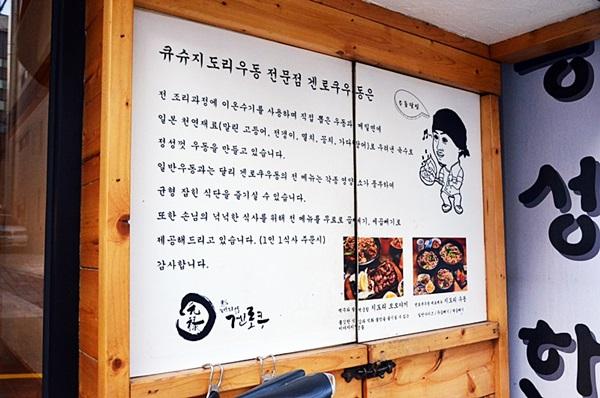 큐슈지도리우동 전문점 겐로쿠우동은
전 조리과정에 이온수기를 사용하며 직접 뽑은 우동과 메밀면에
일본 천연재료(말린 고등어, 전갱이, 멸치, 꽁치, 가다랑어)로 우려낸 육수로
정성껏 우동을 만들고 있습니다.
일반우동과는 달리 겐로쿠우동의 전 메뉴는 각종 영양소가 풍부하며
균형 잡힌 식단을 즐기실 수 있습니다.
또한 손님의 넉넉한 식사를 위해 전 메뉴를 무료로 곱빼기, 세곱빼기로
제공해드리고 있습니다. (1인 1식사 주문시)
감사합니다.
元禄
겐로쿠
지도리 오오나미
지도리 우동
성
하